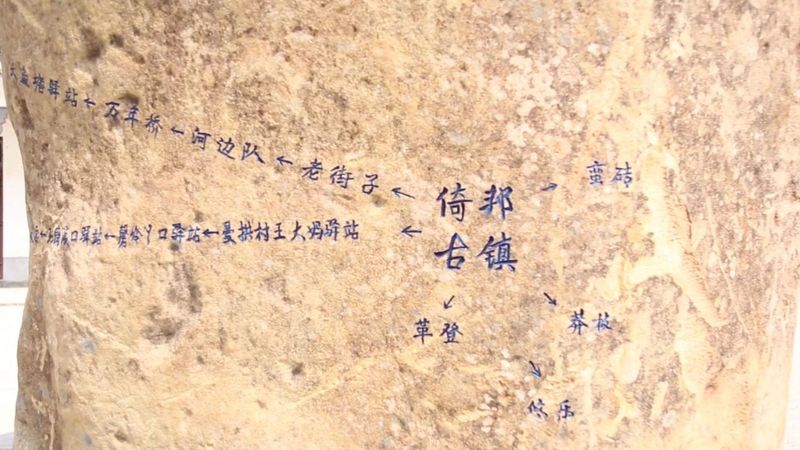 塘驿站←万年桥←河边队←老街子←
倚邦
古镇
→蛮砖
口驿站←曼拱村王大妈驿站←
↙
革登
↘
莽枝
↘
攸乐